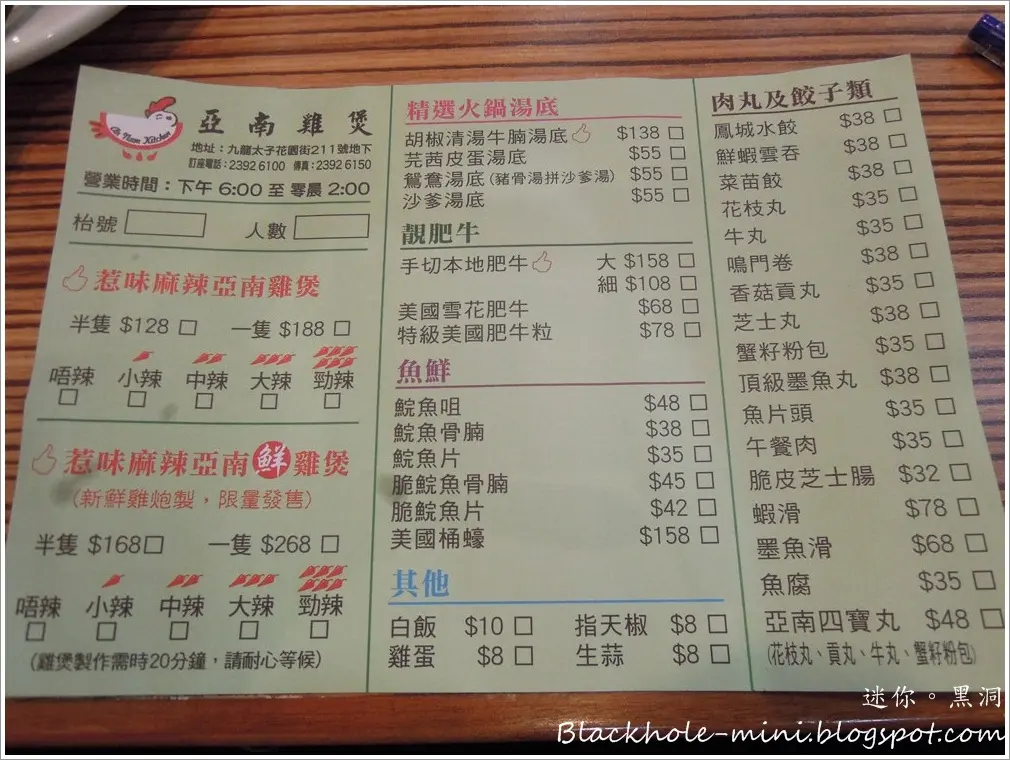 Ah Nam Kitchen
亞南雞煲
地址：九龍太子花園街211號地下
訂座電話：2392 6100 傳真：2392 6150
營業時間：下午 6:00 至 零晨 2:00
枱號
人數
惹味麻辣亞南雞煲
半隻 $128 □ 一隻 $188 □
唔辣 小辣 中辣 大辣 勁辣
□ □ □ □ □
惹味麻辣亞南鮮雞煲
(新鮮雞炮製，限量發售)
半隻 $168□ 一隻 $268 □
唔辣 小辣 中辣 大辣 勁辣
□ □ □ □ □
(雞煲製作需時20分鐘，請耐心等候)
精選火鍋湯底
胡椒清湯牛腩湯底 $138 □
芫茜皮蛋湯底 $55 □
鴛鴦湯底(豬骨湯拼沙爹湯) $55 □
沙爹湯底 $55 □
靚肥牛
手切本地肥牛 大 $158 □
細 $108 □
美國雪花肥牛 $68 □
特級美國肥牛粒 $78 □
魚鮮
鯇魚咀 $48 □
鯇魚骨腩 $38 □
鯇魚片 $35 □
脆鯇魚骨腩 $45 □
脆鯇魚片 $42 □
美國桶蠔 $158 □
其他
白飯 $10 □ 指天椒 $8 □
雞蛋 $8 □ 生蒜 $8 □
肉丸及餃子類
鳳城水餃 $38 □
鮮蝦雲吞 $38 □
菜苗餃 $38 □
花枝丸 $35 □
牛丸 $35 □
鳴門卷 $38 □
香菇貢丸 $35 □
芝士丸 $38 □
蟹籽粉包 $35 □
頂級墨魚丸 $38 □
魚片頭 $35 □
午餐肉 $35 □
脆皮芝士腸 $32 □
蝦滑 $78 □
墨魚滑 $68 □
魚腐 $35 □
亞南四寶丸 $48 □
(花枝丸、貢丸、牛丸、蟹籽粉包)
迷你。黑洞
Blackhole-mini.blogspot.com